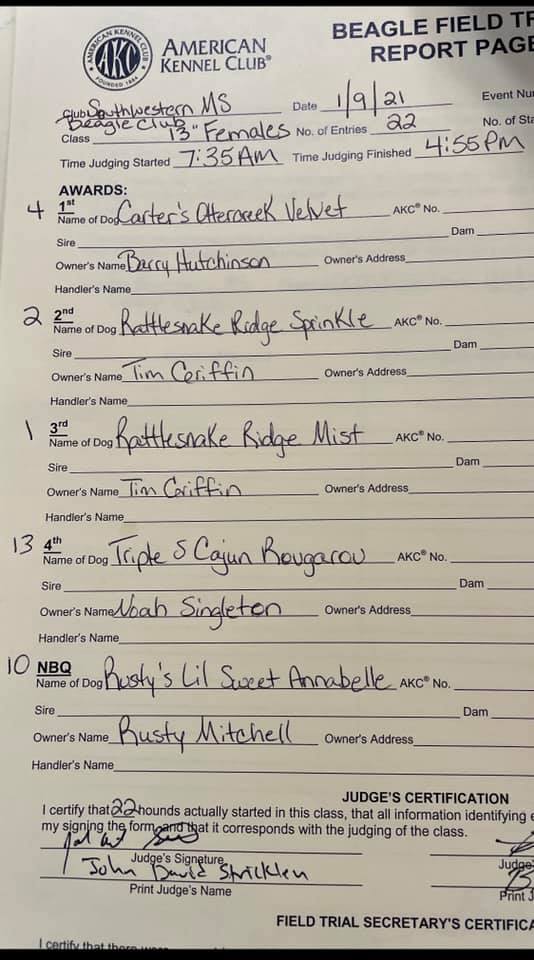 AMERICAN KENNEL CLUB
AKC
FOUNDED 1884
AMERICAN
KENNEL CLUB®
BEAGLE FIELD TR
REPORT PAGE
Club Southwestern MS Beagle Club
Date 1/9/21
Event Nu
Class 13" Females No. of Entries 22 No. of Sta
Time Judging Started 7:35 AM Time Judging Finished 4:55 PM
AWARDS:
4 1st
Name of Dog Carter's Ottercreek Velvet AKC® No.
Sire Dam
Owner's Name Barry Hutchinson Owner's Address
Handler's Name
2 2nd
Name of Dog Rattlesnake Ridge Sprinkle AKC® No.
Sire Dam
Owner's Name Tim Griffin Owner's Address
Handler's Name
1 3rd
Name of Dog Rattlesnake Ridge Mist AKC® No.
Sire Dam
Owner's Name Tim Griffin Owner's Address
Handler's Name
13 4th
Name of Dog Triple S Cajun Rougarou AKC® No.
Sire Dam
Owner's Name Noah Singleton Owner's Address
Handler's Name
10 NBQ
Name of Dog Rusty's Lil Sweet Annabelle AKC® No.
Sire Dam
Owner's Name Rusty Mitchell Owner's Address
Handler's Name
JUDGE'S CERTIFICATION
I certify that 22 hounds actually started in this class, that all information identifying
my signing the form and that it corresponds with the judging of the class.
Judge's Signature Judge
John David Stricklen
Print Judge's Name Print J
FIELD TRIAL SECRETARY'S CERTIFICA
I certify that there were